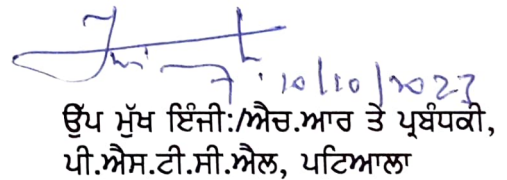 10/10/2023
ਉੱਪ ਮੁੱਖ ਇੰਜੀ:/ਐਚ.ਆਰ ਤੇ ਪ੍ਰਬੰਧਕੀ,
ਪੀ.ਐਸ.ਟੀ.ਸੀ.ਐਲ, ਪਟਿਆਲਾ